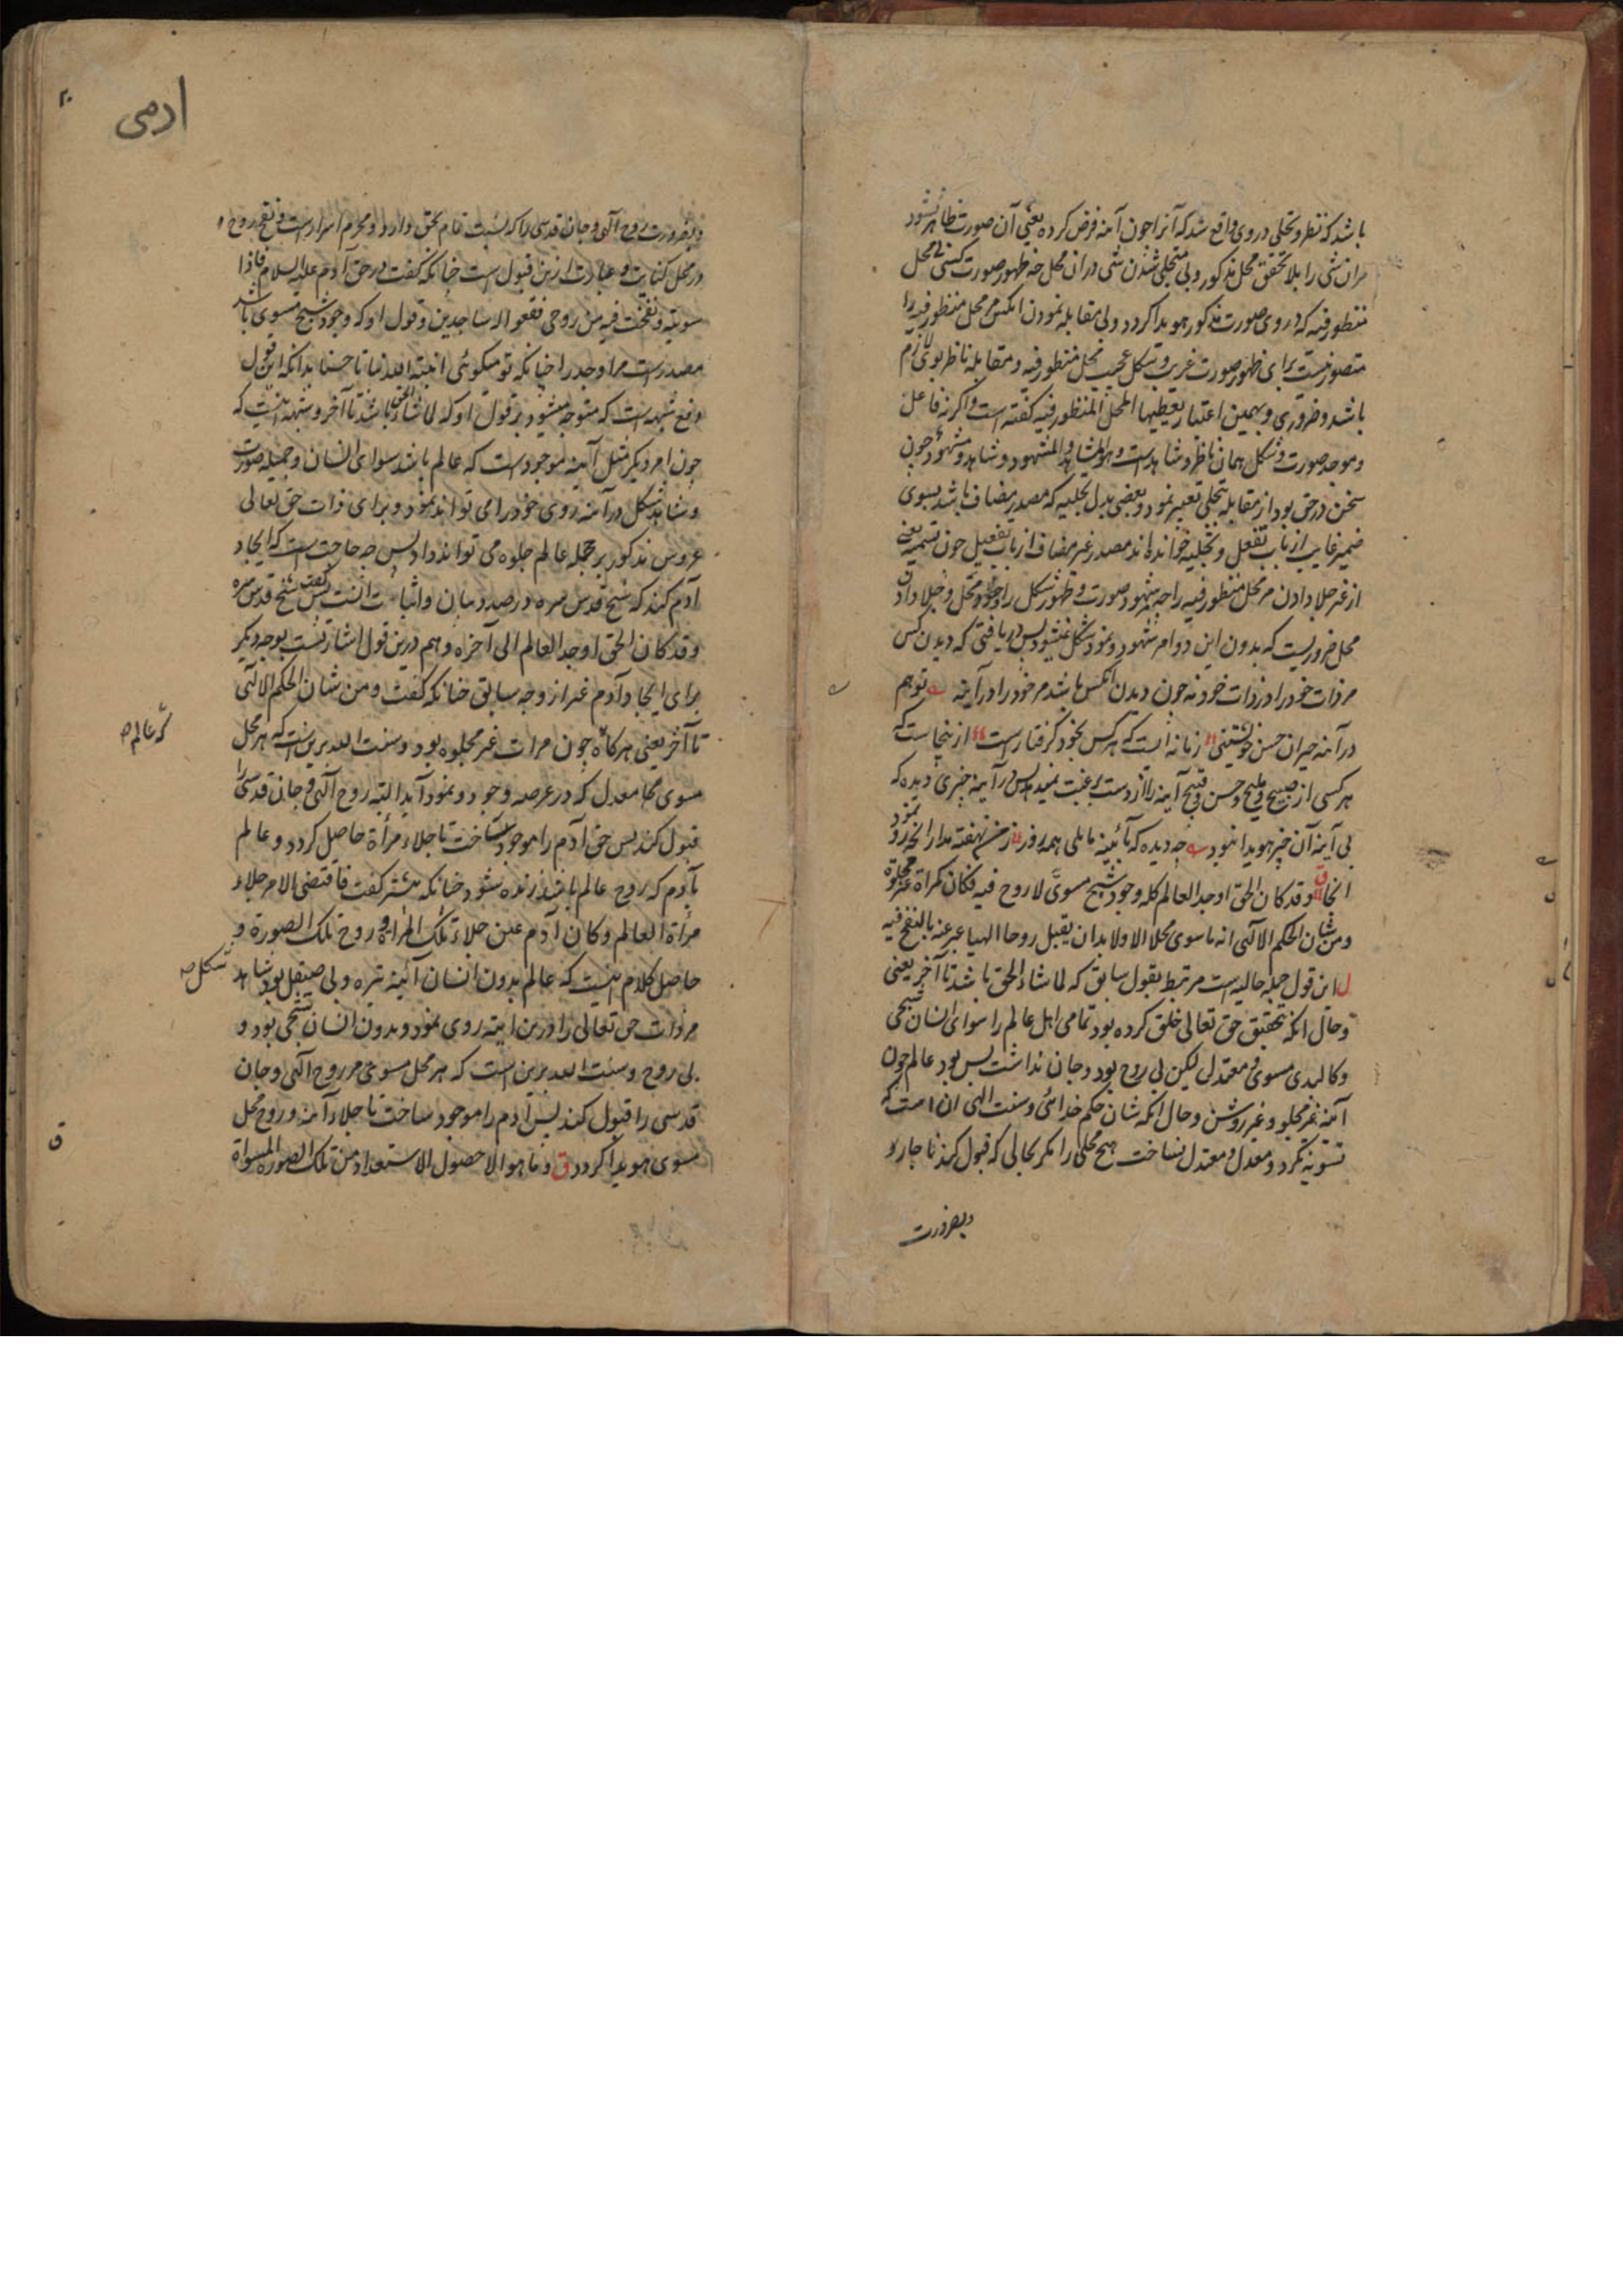 باشد که نظر و تجلی در وی واقع شد که آنرا چون آینه فرض کرده یعنی آن صورت ظاهر نشود
مران شی را بلا تحقق محل مذکور و بی متجلی شدن شی در ان محل چه ظهور صورت کسی بی محل
منظور فیه که در وی صورت مذکور هویدا کردد و بی مقابله نمودن انکس مر محل منظور فیه را
متصور نیست برای ظهور صورت غریب و شکل عجیب محل منظور فیه و مقابله ناظر بوی لازم
باشد و ضروری و بهمین اعتبار یعطیها المحل المنظور فیه کفته است و اکرنه فاعل
و موجد صورت و شکل همان ناظر و شاهد است و هو الشاهد و المشهود و شاهد و مشهود چون
سخن در حق بود از مقابله بتجلی تعبیر نمود و بعضی بدل تجلیه که مصدر مضاف باشد بسوی
ضمیر غایب از باب تفعل و تجلیه خوانده اند مصدر غیر مضاف از باب تفعیل چون تسمیه یعنی
از غیر جلا دادن مر محل منظور فیه را چه شهود صورت و ظهور شکل را وجود محل و جلا دادن
محل ضروریست که بدون این دو امر شهود و نمود شکل نمیشود پس دریافتی که دیدن کس
مر ذات خود را در ذات خود نه چون دیدن انکس باشد مر خود را در آینه تو هم
در آینه حیران حسن خویشتنی زمانه ایست که هر کس بخود کرفتار است از ینجاست که
هر کسی از صبیح و ملیح و حسن و قبیح آینه را از دست برغبت نمیدهد پس در آینه چیزی دیده که
بی آینه آن چیز هویدا نبود چه دیده که بآئینه مایلی همه روز
الخ وقد کان الحق اوجد العالم کله وجود شبح مسوی لا روح فیه فکان کمرآة غیر مجلوة
و من شان الحکم الالهی انه ما سوی محلا الا و لا بد ان یقبل روحا الهیا عبر عنه بالنفخ فیه
این قول جمله حالیه است مرتبط بقول سابق که لما شاء الحق باشد تا آخر یعنی
و حال انکه بتحقیق حق تعالی خلق کرده بود تمامی اهل عالم را سوای انسان شبحی
و کالبدی مسوی و معتدل لیکن بی روح بود و جان نداشت پس بود عالم چون
آینه غیر مجلو و غیر روشن و حال انکه شان حکم خدائی و سنت الهی ان است که
تسویه نکرد و معدل و معتدل نساخت هیچ محلی را مکر بحالی که قبول کند ناچار و
و بضرورت
آدمی
۲۰
و بضرورت روح آلهی و جان قدسی را که نسبت تمام بحق دارد و محرم اسرار است و نفخ روح
در محل کنایت و عبارت ازین قبول است چنانکه کفت در حق آدم علیه السلام فاذا
سویته و نفخت فیه من روحی فقعوا له ساجدین و قول او که وجود شبح مسوی باشد
مصدر است مر اوجد را چنانکه تو میکوئی انبته الله نباتا حسنا بدانکه این قول
دفع شبهه است که متوجه میشود بر قول او که لما شاء الحق باشد تا آخر و شبهه اینست که
چون امر دیکر مثل آینه موجود است که عالم باشد سوای انسان و جمیله صورت
و شاهد شکل در آینه روی خود را می تواند نمود و برای ذات حق تعالی
عروس مذکور بر جمله عالم جلوه می تواند داد پس چه حاجت است که ایجاد
آدم کند که شیخ قدس سره در صدد بیان و اثبات انست پس کفت شیخ قدس سره
و قد کان الحق اوجد العالم الی آخره و هم درین قول اشارتست بوجه دیکر
برای ایجاد آدم غیر از وجه سابق چنانکه کفت و من شان الحکم الالهی
تا آخر یعنی هرکاه چون مرات غیر مجلوه بود و سنت الله برین است که هر محل
مسوی معدل که در عرصه وجود و نمود آید البته روح آلهی و جان قدسی را
قبول کند پس حق آدم را موجود ساخت تا جلاء مرآة حاصل کردد و عالم
بآدم که روح عالم باشد زنده شود چنانکه پیشتر کفت فاقتضی الامر جلاء
مرآة العالم و کان آدم عین جلاء تلک المرآة و روح تلک الصورة و
حاصل کلام اینست که عالم بدون انسان آئینه تیره و بی صیقل بود شاهد
مر ذات حق تعالی را درین آینه روی ننمود و بدون انسان شبحی بود و
بی روح و سنت الله برین است که هر محل مسوی مر روح آلهی و جان
قدسی را قبول کند پس آدم را موجود ساخت تا جلاء آینه و روح محل
مسوی هویدا کردد ق و ما هو الا حصول الاستعداد من تلک الصورة المسواة
که عالم
شکل
ق